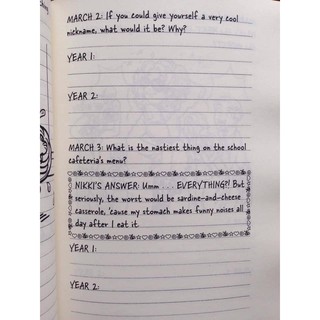 MARCH 2: If you could give yourself a very cool
nickname, what would it be? Why?
YEAR 1:
YEAR 2:
MARCH 3: What is the nastiest thing on the school
cafeteria's menu?
NIKKI'S ANSWER: Umm . . . EVERYTHING?! But
seriously, the worst would be sardine-and-cheese
casserole, 'cause my stomach makes funny noises all
day after I eat it.
YEAR 1:
YEAR 2: